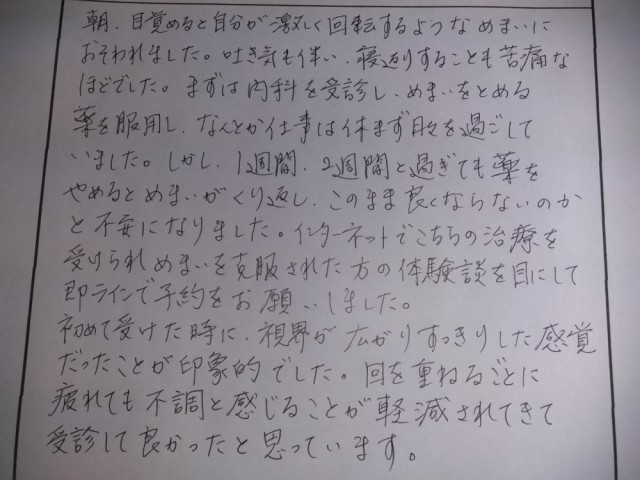 朝、目覚めると自分が激しく回転するようなめまいに
おそわれました。吐き気も伴い、寝返りすることも苦痛な
ほどでした。まずは内科を受診し、めまいをとめる
薬を服用し、なんとか仕事は休まず日々を過ごして
いました。しかし、1週間、2週間と過ぎても薬を
やめるとめまいがくり返し、このまま良くならないのか
と不安になりました。インターネットでこちらの治療を
受けられめまいを克服された方の体験談を目にして
即ラインで予約をお願いしました。
初めて受けた時に、視界が広がりすっきりした感覚
だったことが印象的でした。回を重ねるごとに
疲れても不調と感じることが軽減されてきて
受診して良かったと思っています。